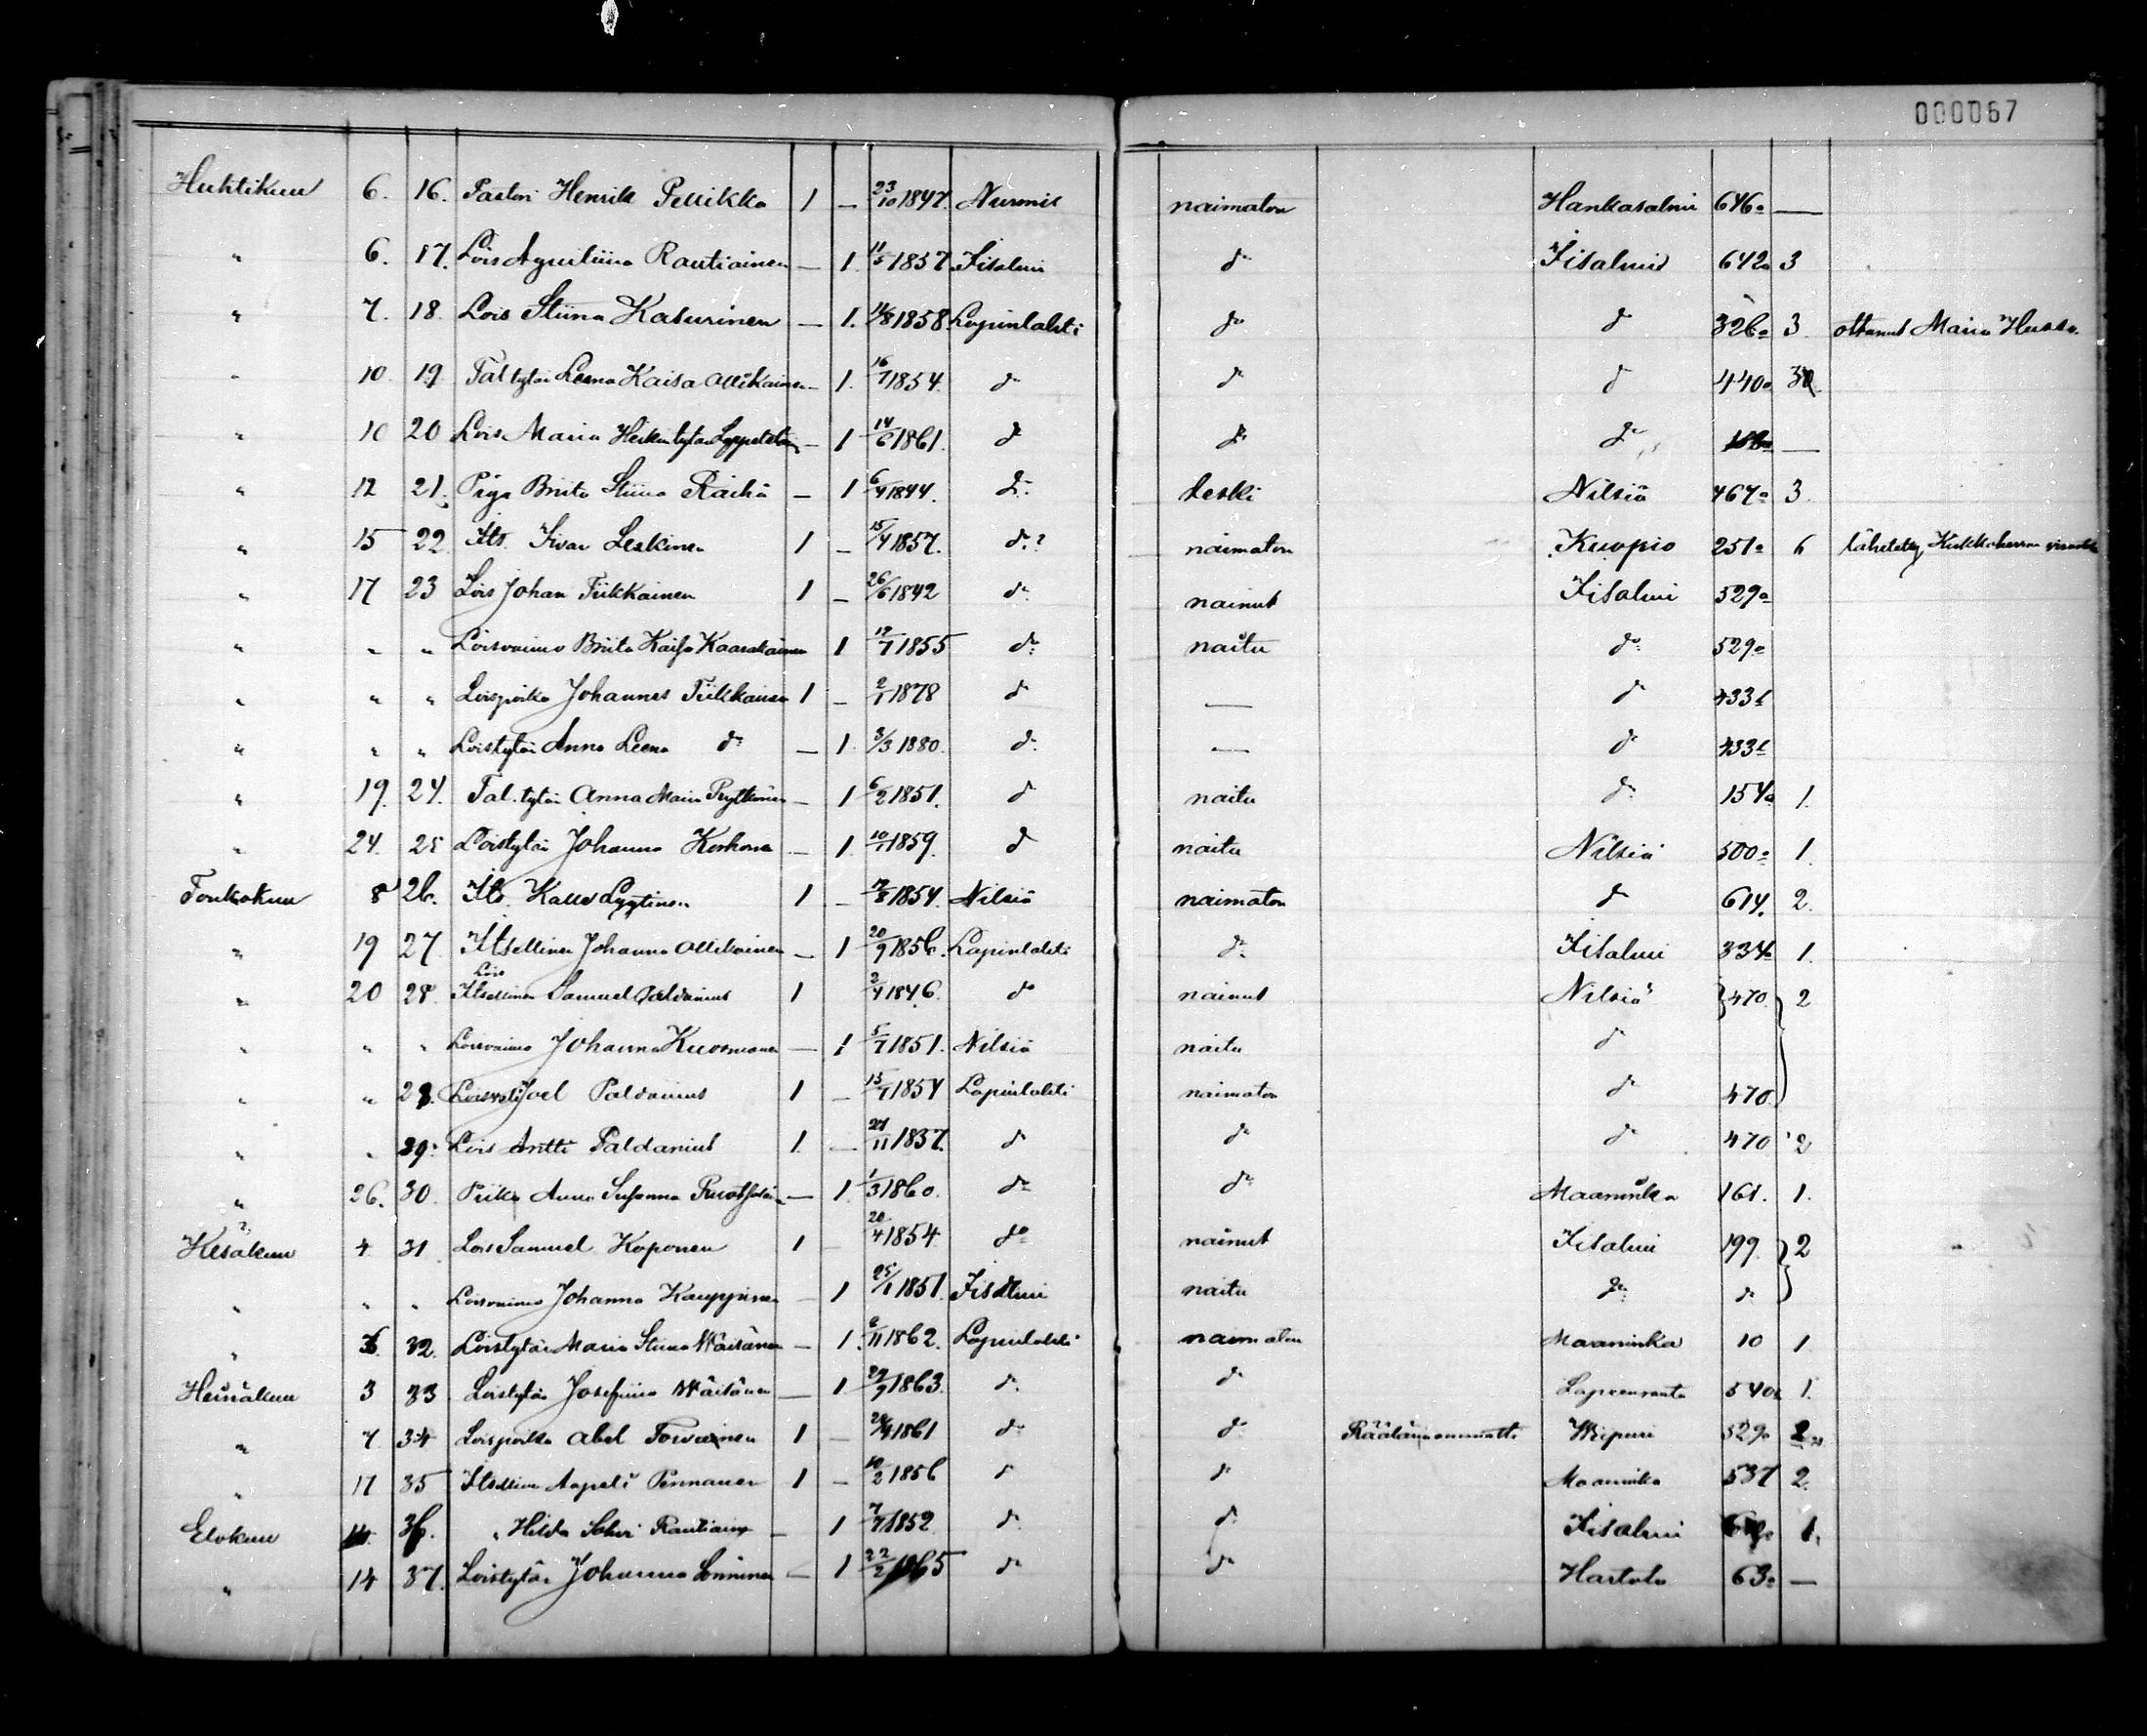 000067
Huhtikuu 6. 16. Pastori Henrik Pellikka 1 — 23/10 1847. Nurmis naimaton Hankasalmi 646a —
" 6. 17. Lois Aquiliina Rautiainen — 1. 11/5 1857 Iisalmi do Iisalmi 642a 3
" 7. 18. Lois Stiina Kasurinen — 1. 1858 Lapinlahti do do 326a 3. ottanut Maria Husso.
" 10. 19. Tal tytär Leena Kaisa Ollikainen — 1. 16/7 1854. do do do 440a
" 10 20 Lois Maria Heikintytär — 1 14/6 1861. do do do —
" 12 21. Piga Briita Stiina — 1 6/4 1844. do leski Nilsiä 467a 3.
" 15 22. Its. Iivar Leskinen 1 — 15/4 1857. do? naimaton Kuopio 251a 6 lähetetty Kirkkoherran
" 17 23 Lois Johan Tiikkainen 1 — 26/6 1842 do nainut Iisalmi 529a
" " " Loisvaimo Briita Kaisa Kaarakainen 1 12/7 1855 do naitu do 529a
" " " Loispoika Johannes Tiikkainen 1 — 2/1 1878 do — do 433
" " " Loistytär Anna Leena do — 1. 3/3 1880. do — do 433
" 19. 24. Tal. tytär Anna Maria Rytkönen — 1 6/2 1851. do naitu do 154a 1.
" 24. 25 Loistytär Johanna Korhonen — 1. 10/1 1859. do naitu Nilsiä 500a 1.
Toukokuu 8 26. Its. Kalle Lyytinen 1 — 1854. Nilsiä naimaton do 614. 2.
" 19 27. Itsellinen Johanna Ollikainen — 1 20/9 1856. Lapinlahti do Iisalmi 334a 1.
Lois
" 20 28. Itsellinen Samuel Paldanius 1 2/4 1846. do nainut Nilsiä 470. 2
" " " Loisvaimo Johanna Kuosmanen — 1 5/7 1851. Nilsiä naitu do
" " 28. Loisveli Joel Paldanius 1 — 1854 Lapinlahti naimaton do 470.
" " 29. Lois Antti Paldanius 1. — 1837. do do do 470 2
" 26. 30. Piika Anna Susanna — 1. 1/3 1860. do do Maaninka 161. 1.
Kesäkuu 4 31. Lois Samuel Koponen 1 — 20/4 1854 do nainut Iisalmi 199. 2
" " " Loisvaimo Johanna Kauppinen — 1 25/1 1851. Iisalmi naitu do do
" 32. Loistytär Maria Stiina Wäisänen — 1. 1862. Lapinlahti naimaton Maaninka 10 1
Heinäkuu 3 33 Loistytär Josefiina Wäisänen — 1 1863. do do Lapeenranta 540a 1.
" 7 34 Loispoika Abel Toivainen 1 — 1861 do do Wiipuri 529a
" 17 35 Itsellinen Aapeli Pennanen 1 — 10/2 1856 do do Maaninka 537 2.
Elokuu 36. " Hilda Rautiain — 1 1852 do do Iisalmi 1.
" 14 37. Loistytär Johanna — 1 22/2 1865 do do Hartola 63a —